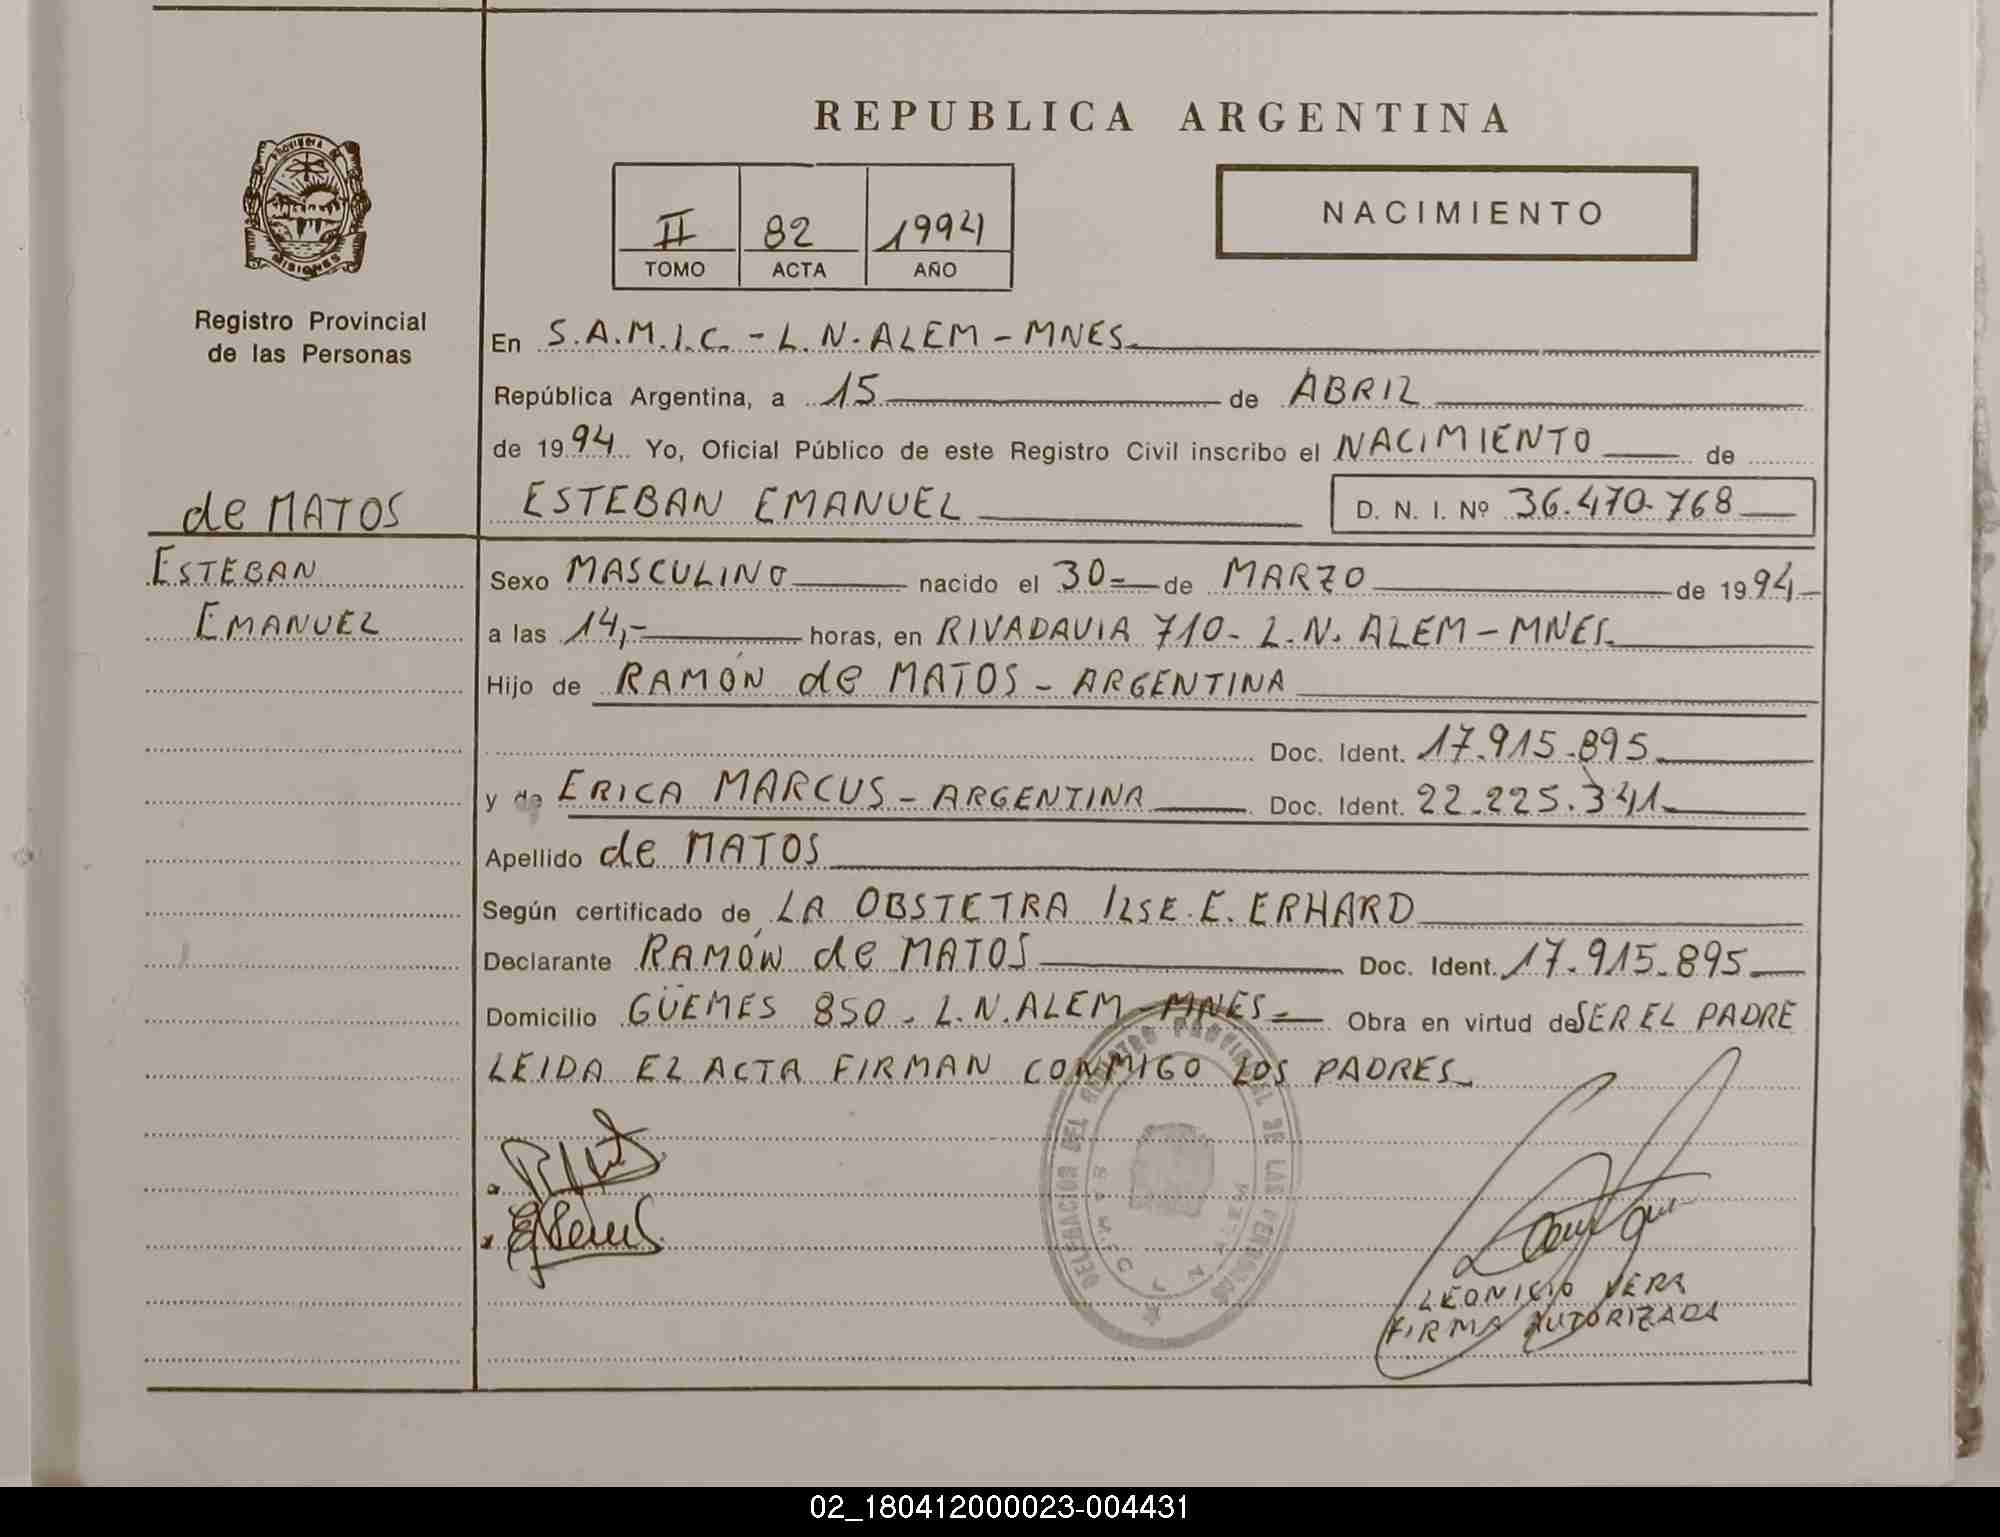 REPUBLICA ARGENTINA
PROVINCIA DE
MISIONES
Registro Provincial
de las Personas
II 82 1994
TOMO ACTA AÑO
NACIMIENTO
de MATOS
ESTEBAN
EMANUEL
En S.A.M.I.C. - L.N. ALEM - MNES.
República Argentina, a 15 de ABRIL
de 1994 Yo, Oficial Público de este Registro Civil inscribo el NACIMIENTO de
ESTEBAN EMANUEL D. N. I. Nº 36.470.768
Sexo MASCULINO nacido el 30= de MARZO de 1994-
a las 14,- horas, en RIVADAVIA 710- L.N. ALEM - MNES.
Hijo de RAMÓN de MATOS - ARGENTINA
Doc. Ident. 17.915.895
y de ERICA MARCUS - ARGENTINA Doc. Ident. 22.225.341
Apellido de MATOS
Según certificado de LA OBSTETRA ILSE. E. ERHARD
Declarante RAMÓN de MATOS Doc. Ident. 17.915.895
Domicilio GÜEMES 850 - L.N. ALEM - MNES - Obra en virtud de SER EL PADRE
LEIDA EL ACTA FIRMAN CONMIGO LOS PADRES
DELEGACION DEL REGISTRO PROVINCIAL DE LAS PERSONAS
LEONICIO VERA
FIRMA AUTORIZADA
02_180412000023-004431